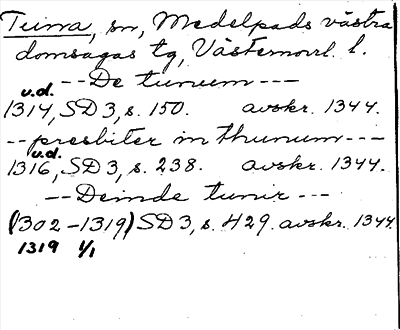 Tuna, sn, Medelpads västra
domsagas tg, Västernorrl. l.
-- De tunum ---
u.d.
1314, SD 3, s. 150. avskr. 1344.
-- presbiter in thunum ---
u.d.
1316, SD 3, s. 238. avskr. 1344.
-- Deinde tunir ---
(1302-1319) SD 3, s. 429. avskr. 1344
1319 1/1